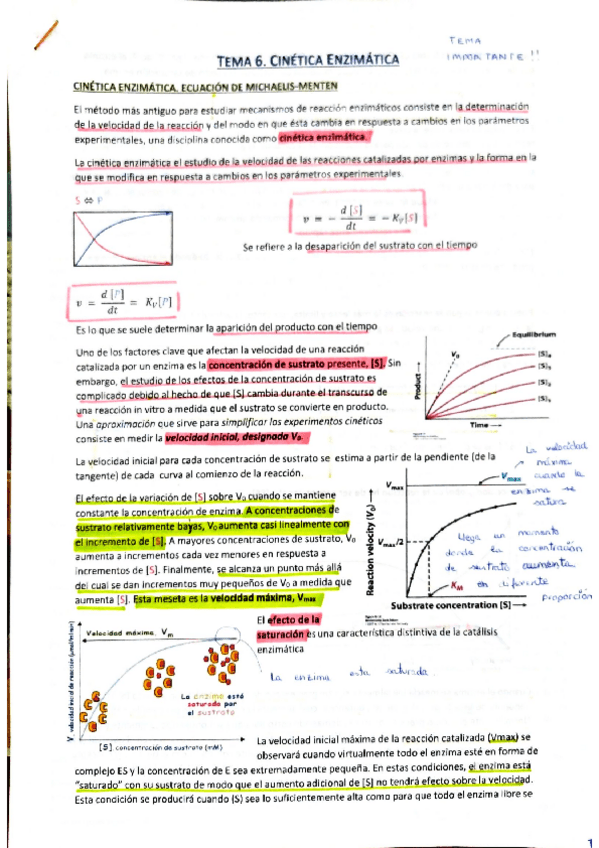 TEMA
IMPORTANTE !!
TEMA 6. CINÉTICA ENZIMÁTICA
CINÉTICA ENZIMÁTICA. ECUACIÓN DE MICHAELIS-MENTEN
El método más antiguo para estudiar mecanismos de reacción enzimáticos consiste en la determinación
de la velocidad de la reacción y del modo en que ésta cambia en respuesta a cambios en los parámetros
experimentales, una disciplina conocida como cinética enzimática.
La cinética enzimática el estudio de la velocidad de las reacciones catalizadas por enzimas y la forma en la
que se modifica en respuesta a cambios en los parámetros experimentales.
S ⇔ P
v = − d [S] / dt = − K_V[S]
Se refiere a la desaparición del sustrato con el tiempo
v = d [P] / dt = K_V[P]
Es lo que se suele determinar la aparición del producto con el tiempo
Uno de los factores clave que afectan la velocidad de una reacción
catalizada por un enzima es la concentración de sustrato presente, [S]. Sin
embargo, el estudio de los efectos de la concentración de sustrato es
complicado debido al hecho de que [S] cambia durante el transcurso de
una reacción in vitro a medida que el sustrato se convierte en producto.
Una aproximación que sirve para simplificar los experimentos cinéticos
consiste en medir la velocidad inicial, designada V₀.
Equilibrium
V₀
[S]₄
[S]₃
[S]₂
[S]₁
Product
Time
La velocidad inicial para cada concentración de sustrato se estima a partir de la pendiente (de la
tangente) de cada curva al comienzo de la reacción.
El efecto de la variación de [S] sobre V₀ cuando se mantiene
constante la concentración de enzima. A concentraciones de
sustrato relativamente bayas, V₀ aumenta casi linealmente con
el incremento de [S]. A mayores concentraciones de sustrato, V₀
aumenta a incrementos cada vez menores en respuesta a
incrementos de [S]. Finalmente, se alcanza un punto más allá
del cual se dan incrementos muy pequeños de V₀ a medida que
aumenta [S]. Esta meseta es la velocidad máxima, Vmax
Vmax
Vmax
Vmax/2
KM
Reaction velocity (V₀)
Substrate concentration [S]
La velocidad
máxima
cuando la
enzima se
satura
Llega un momento
donde la concentración
de sustrato aumenta
en diferente
proporción
El efecto de la
saturación es una característica distintiva de la catálisis
enzimática
La enzima esta saturada
Velocidad máxima, Vm
La enzima está
saturada por
el sustrato
V, velocidad inicial de reacción (μmol/min)
[S], concentración de sustrato (mM)
La velocidad inicial máxima de la reacción catalizada (Vmax) se
observará cuando virtualmente todo el enzima esté en forma de
complejo ES y la concentración de E sea extremadamente pequeña. En estas condiciones, el enzima está
"saturado" con su sustrato de modo que el aumento adicional de [S] no tendrá efecto sobre la velocidad.
Esta condición se producirá cuando (S) sea lo suficientemente alta como para que todo el enzima libre se